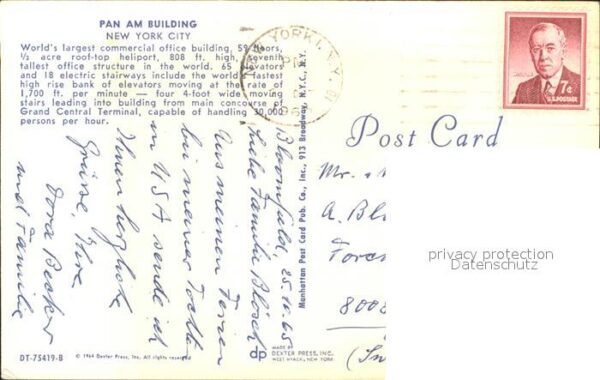 PAN AM BUILDING
NEW YORK CITY
World's largest commercial office building, 59 floors,
½ acre roof-top heliport, 808 ft. high, seventh
tallest office structure in the world. 65 elevators
and 18 electric stairways include the world's fastest
high rise bank of elevators moving at the rate of
1,700 ft. per minute — four 4-foot wide moving
stairs leading into building from main concourse of
Grand Central Terminal, capable of handling 30,000
persons per hour.
YORK 1, N.Y.
7¢
U.S. POSTAGE
Post Card
Manhattan Post Card Pub. Co., Inc., 913 Broadway, N.Y.C., N.Y.
Bloomfield, 25.10.65
Liebe Familie Blösch
Aus meinen Ferien
bei meiner Tochter
in USA sende ich
Ihnen herzliche
Grüsse, Ihre
Dora Becker
und Familie
Mr.
A. Bl
Fores
8008
privacy protection
Datenschutz
DT-75419-B
© 1964 Dexter Press, Inc. All rights reserved
dp
MADE BY
DEXTER PRESS, INC.
WEST NYACK, NEW YORK